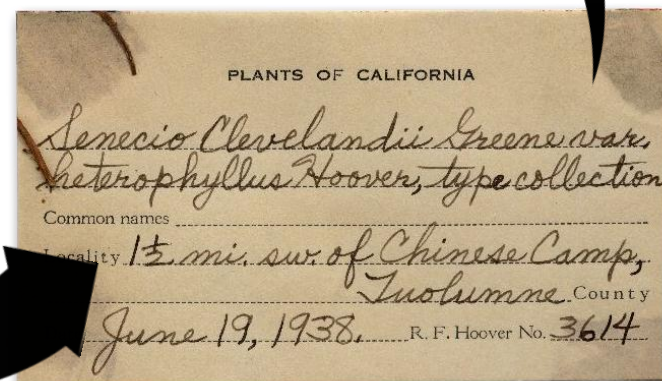 PLANTS OF CALIFORNIA
Senecio Clevelandii Greene var.
heterophyllus Hoover, type collection
Common names
Locality 1½ mi. sw. of Chinese Camp,
Tuolumne County
June 19, 1938. R. F. Hoover No. 3614